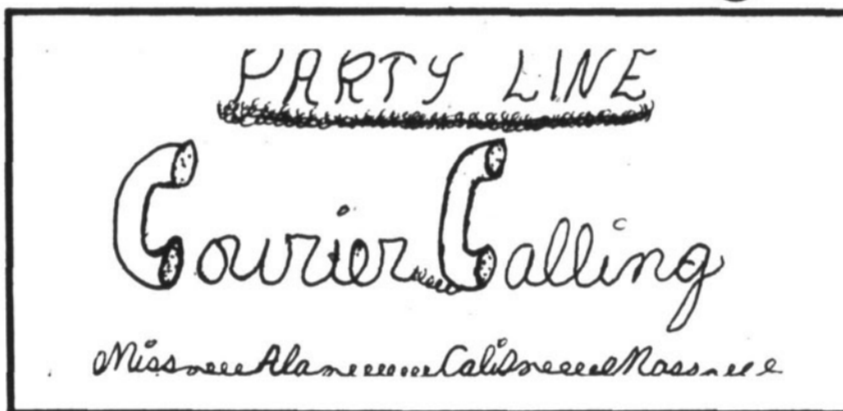 PARTY LINE
Courier Calling
Miss Ala Calif Mass